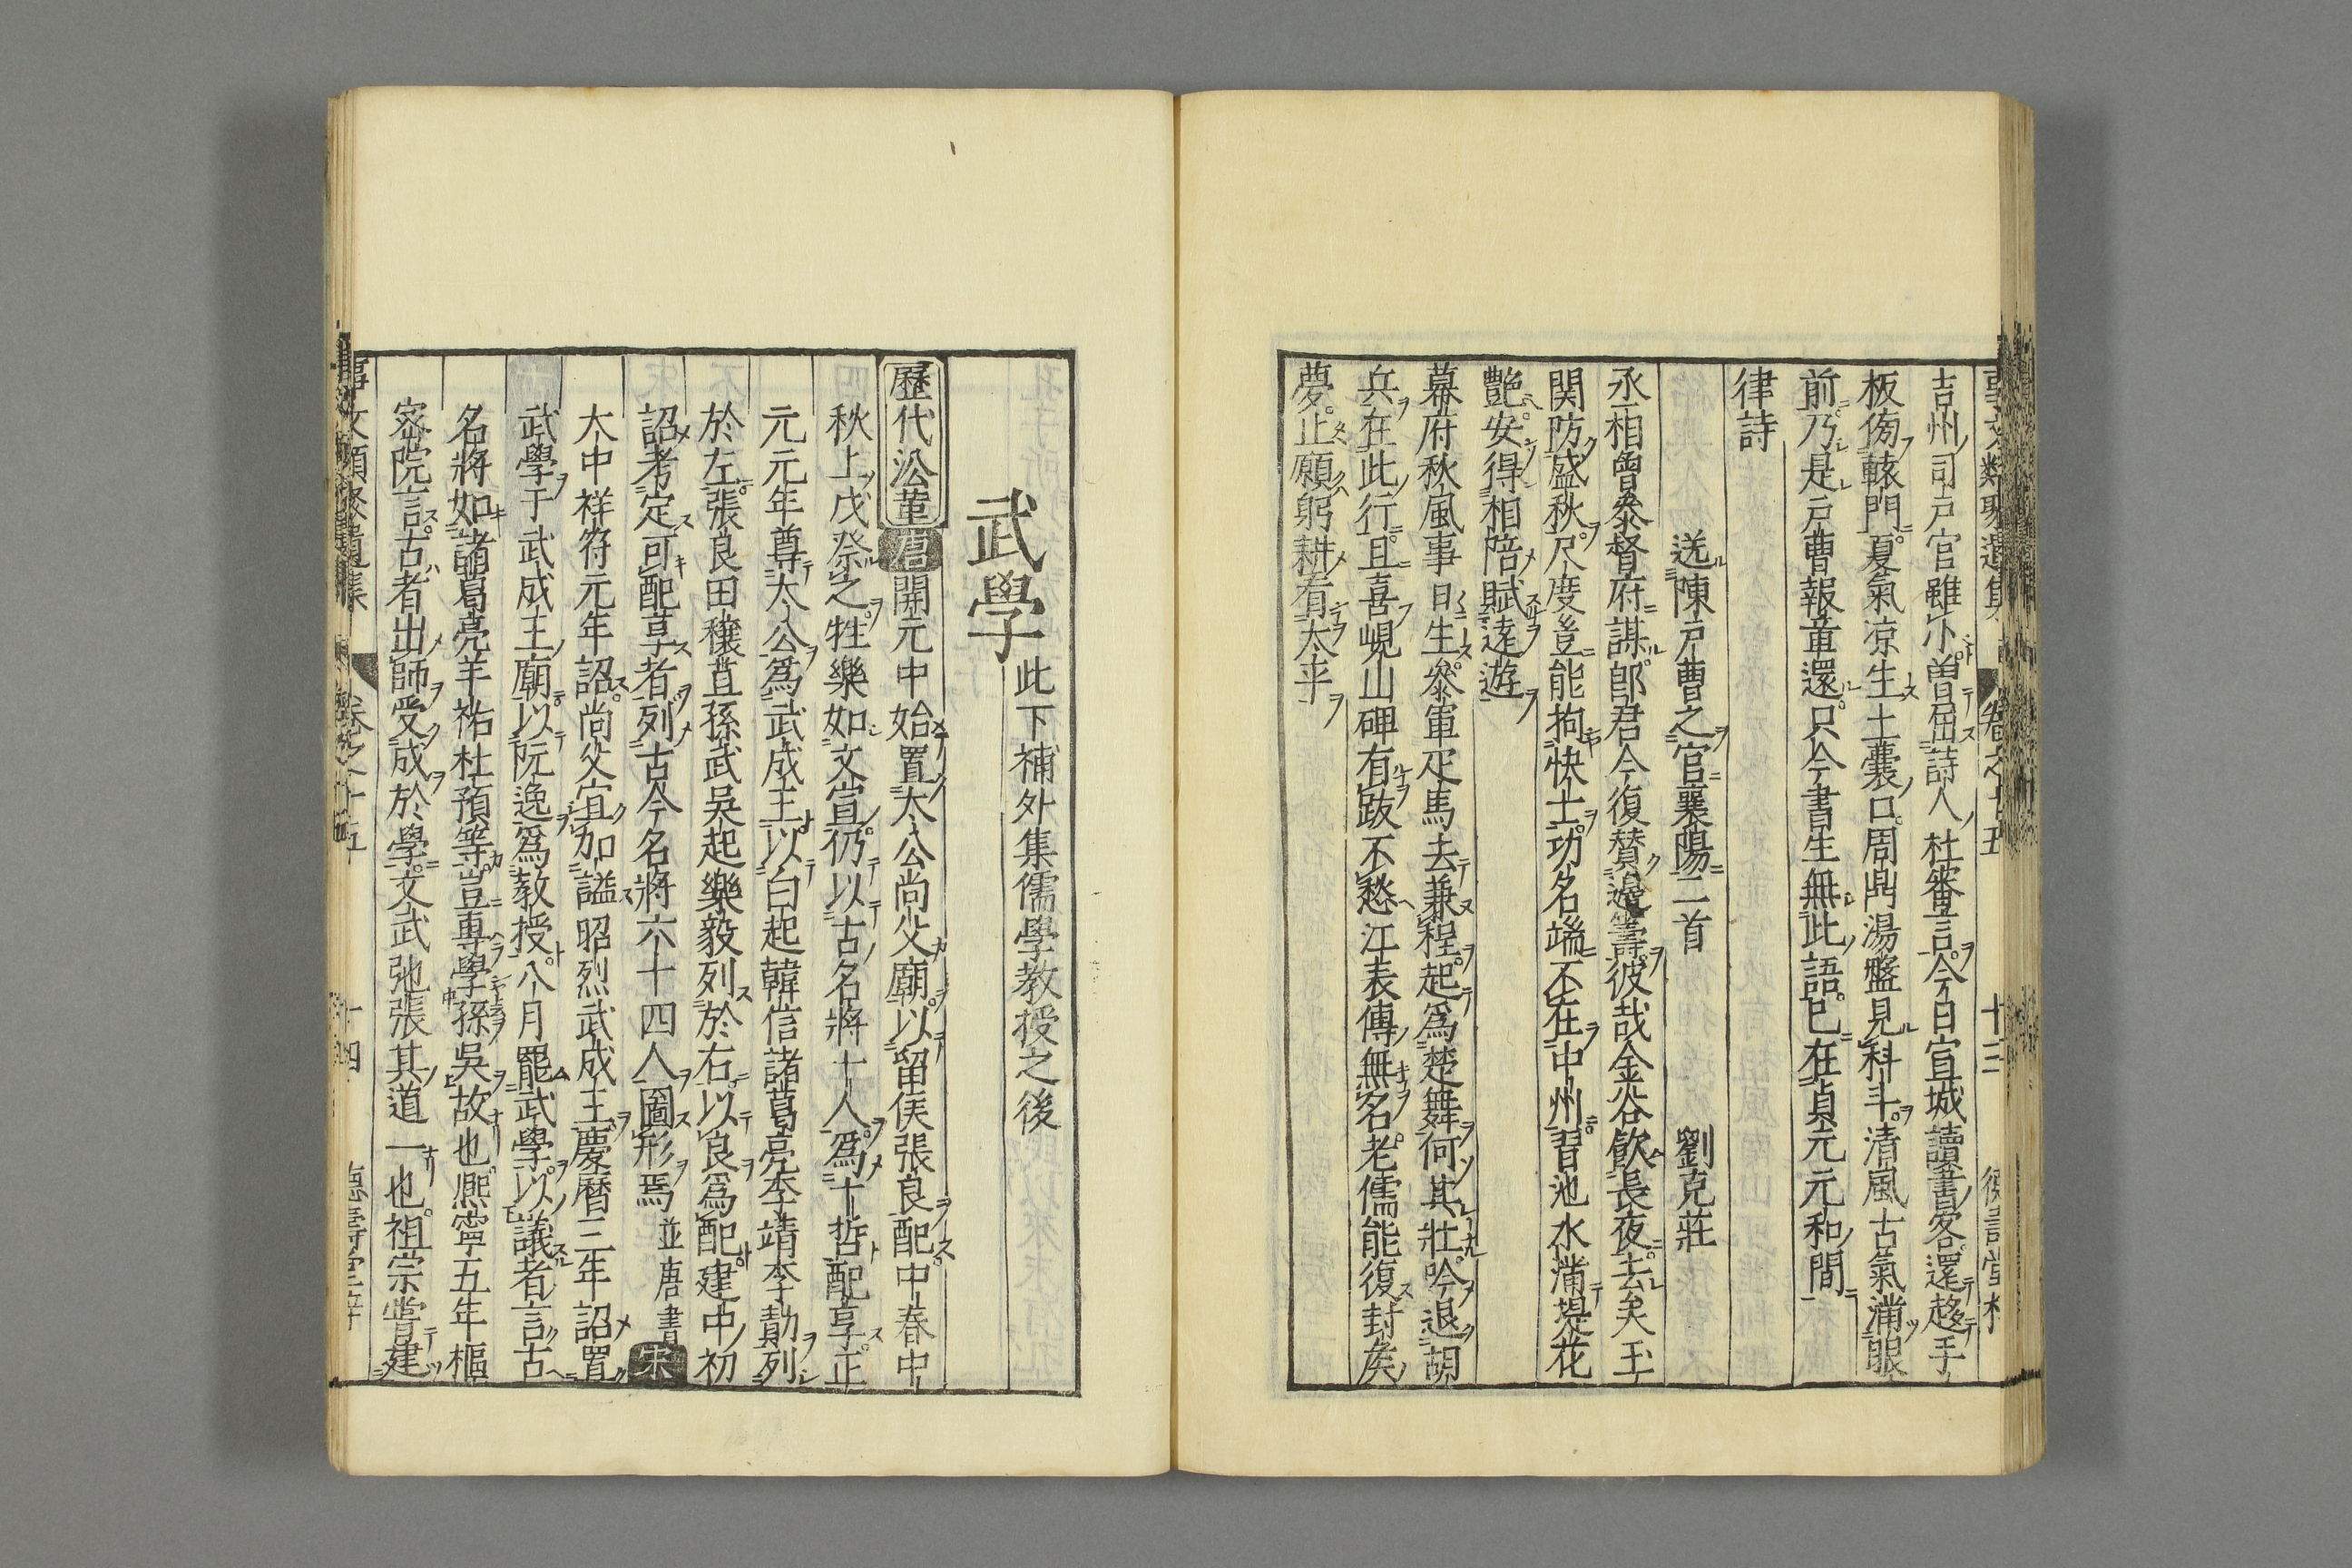 吉州司戸官雖小曽屈詩人杜審言今日宣城讀書客還趍手
板傍轅門夏氣凉生土囊口周鼎湯盤見科斗清風古氣滿眼
前乃是戸曹報章還只今書生無此語已在貞元元和間
律詩
送陳戸曹之官襄陽二首 劉克莊
丞相曽叅督府謀郎君今復賛邊籌彼哉金谷飲長夜去矣玉
関防盛秋尺度豈能拘快士功名端不在中州習池水滿堤花
艶安得相陪賦遠遊
幕府秋風事日生叅軍疋馬去兼程起爲楚舞何其壯吟退胡
兵在此行且喜峴山碑有跋不愁江表傳無名老儒能復封矦
夢止願躬耕看太平
武學 此下補外集儒學教授之後
歷代㳂革 唐 開元中始置太公尚父廟以留侯張良配中春中
秋上戊祭之牲樂如文宣仍以古名將十人爲十哲配享正
元元年尊太公爲武成王以白起韓信諸葛亮李靖李勣列
於左張良田穰苴孫武吳起樂毅列於右以良爲配建中初
詔考定可配享者列古今名將六十四人圖形焉 並唐書 宋
大中祥符元年詔尚父宜加謚昭烈武成王慶曆三年詔置
武學于武成王廟以阮逸爲教授八月罷武學以議者言古
名將如諸葛亮羊祜杜預等豈專學孫吳故也熈寧五年樞
宻院言古者出師受成於學文武弛張其道一也祖宗嘗建